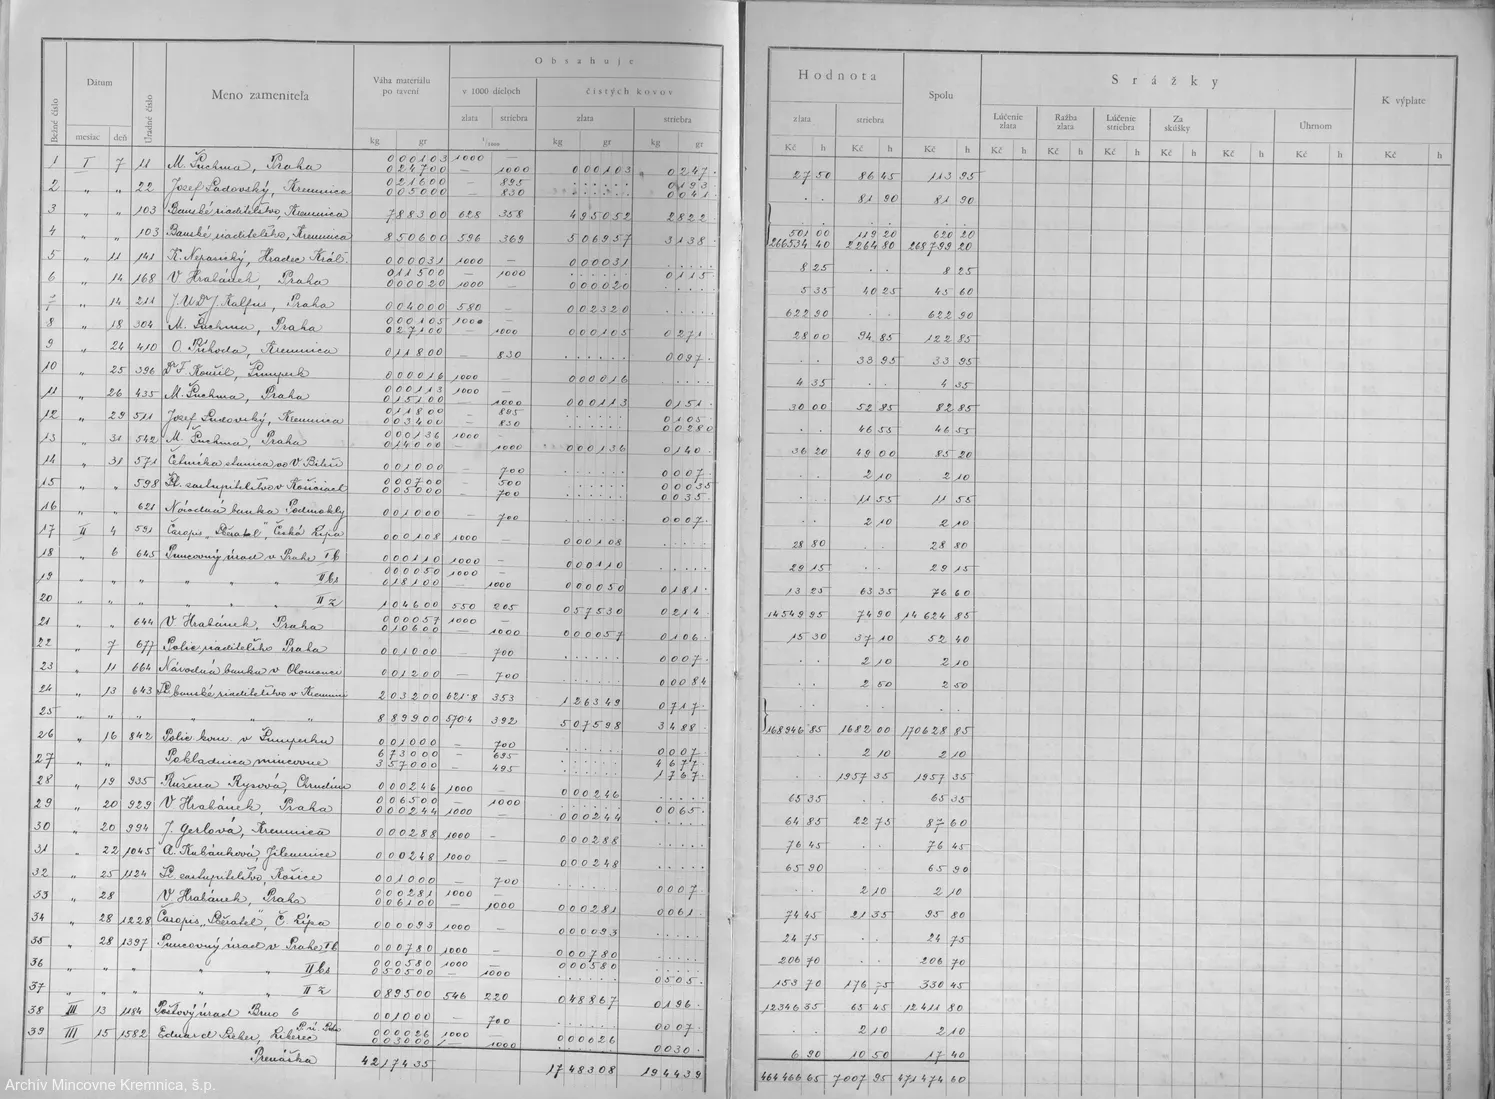 Obsahuje
Dátum
Váha materiálu po tavení
v 1000 dieloch
čistých kovov
Bežné číslo
Úradné číslo
Meno zameniteľa
zlata striebra zlata striebra
mesiac deň
kg gr 1/1000 kg gr kg gr
Hodnota
Spolu
Srážky
K výplate
zlata striebra
Lúčenie zlata
Ražba zlata
Lúčenie striebra
Za skúšky
Úhrnom
Kč h Kč h Kč h Kč h Kč h Kč h Kč h Kč h Kč h
1 I 7 11 M. Šuchma, Praha 000103 1000 — 000103 27 50 86 45 113 95
024700 — 1000 0247
2 „ „ 22 Josef Sadovský, Kremnica 021600 895 0193 81 90 81 90
005000 830 0041
3 „ „ 103 Banské riaditeľstvo, Kremnica 788300 628 358 495052 2822
4 „ „ 103 Banské riaditeľstvo, Kremnica 850600 596 369 506957 3138 501 00 119 20 620 20
266534 40 2264 80 268799 20
5 „ 11 141 K. Neparický, Hradec Král. 000031 1000 — 000031 8 25 8 25
6 „ 14 168 V Hrabánek, Praha 011500 — 1000 0115 5 35 40 25 45 60
000020 1000 000020
7 „ 14 211 Kalfus, Praha 004000 580 — 002320 622 90 622 90
8 „ 18 304 M. Šuchma, Praha 000105 1000 000105 28 00 94 85 122 85
027100 — 1000 0271
9 „ 24 410 O. Příhoda, Kremnica 011800 — 830 0097 33 95 33 95
10 „ 25 396 Dr F. Koušil, Šumperk 000016 1000 — 000016 4 35 4 35
11 „ 26 435 M. Šuchma, Praha 000113 1000 — 000113 30 00 52 85 82 85
015100 — 1000 0151
12 „ 29 511 Josef Sadovský, Kremnica 011800 895 0105 46 55 46 55
003400 — 830 00280
13 „ 31 542 M. Šuchma, Praha 000136 1000 — 000136 36 20 49 00 85 20
014000 — 1000 0140
14 „ 31 571 Četnícka stanica vo V. Bitíči 001000 — 700 0007 2 10 2 10
15 „ „ 598 Št. zastupiteľstvo v Košiciach 000700 500 00035 11 55 11 55
005000 700 0035
16 „ 621 Národná banka Podmokly 001000 — 700 0007 2 10 2 10
17 II 4 591 Časopis „Sběratel" Česká Lípa 000108 1000 — 000108 28 80 28 80
18 „ 6 645 Puncovný úrad v Prahe Ib 000110 1000 — 000110 29 15 29 15
19 „ „ „ „ „ IIbs 000050 1000 — 000050 13 25 63 35 76 60
018100 — 1000 0181
20 „ „ „ „ „ IIz 104600 550 205 057530 0214 14549 95 74 90 14624 85
21 „ 644 V Hrabánek, Praha 000057 1000 — 000057 15 30 37 10 52 40
010600 — 1000 0106
22 „ 7 677 Polic riaditeľstvo Praha 001000 — 700 0007 2 10 2 10
23 „ 11 664 Národná banka v Olomouci 001200 — 700 00084 2 50 2 50
24 „ 13 643 Št. banské riaditeľstvo v Kremnici 203200 621·8 353 126349 0717
25 „ „ „ „ „ 889900 570·4 392 507598 3488 168946 85 1682 00 170628 85
26 „ 16 842 Polic. kom. v Šumperku 001000 — 700 0007 2 10 2 10
27 „ „ Pokladnica mincovne 673000 — 695 4677 1957 35 1957 35
357000 — 495 1767
28 „ 19 935 Ružena Rysová, Chrudim 000246 1000 — 000246 65 35 65 35
29 „ 20 929 V Hrabánek, Praha 006500 — 1000 0065 64 85 22 75 87 60
000244 1000 000244
30 „ 20 994 J. Gerlová, Kremnica 000288 1000 — 000288 76 45 76 45
31 „ 22 1045 A. Kubánková, Jilemnice 000248 1000 — 000248 65 90 65 90
32 „ 25 1124 Št. zastupiteľstvo, Košice 001000 — 700 0007 2 10 2 10
33 „ 28 V. Hrabánek, Praha 000281 1000 — 000281 74 45 21 35 95 80
006100 — 1000 0061
34 „ 28 1228 Časopis „Sběratel", Č. Lípa 000093 1000 — 000093 24 75 24 75
35 „ 28 1397 Puncovný úrad v Prahe Ib 000780 1000 — 000780 206 70 206 70
36 „ „ „ „ IIbs 000580 1000 — 000580 153 70 176 75 330 45
050500 — 1000 0505
37 „ „ „ „ IIz 089500 546 220 048867 0196 12346 35 65 45 12411 80
38 III 13 1184 Poštový úrad Brno 6 001000 — 700 0007 2 10 2 10
39 III 15 1582 Eduard Lieber, Liberec 000026 1000 — 000026 6 90 10 50 17 40
003000 — 1000 0030
Prenáška 4217435 1748308 194439 464466 65 7007 95 471474 60
Archív Mincovne Kremnica, š.p.